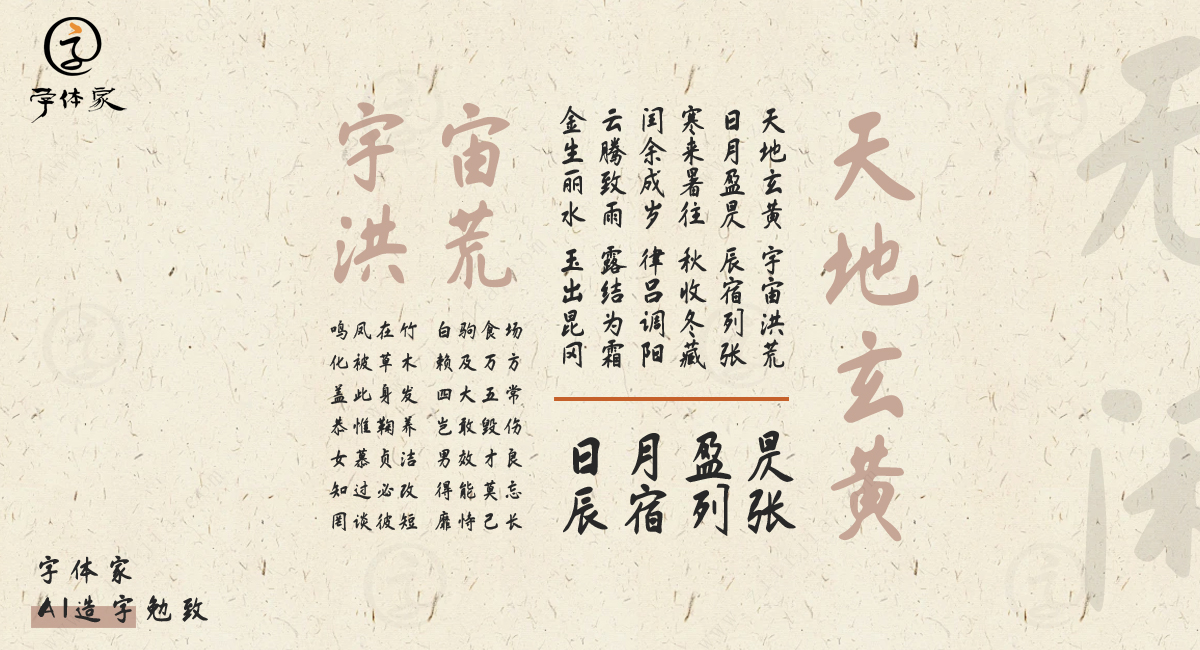 字体家
天地玄黄
天地玄黄 宇宙洪荒
日月盈昃 辰宿列张
寒来暑往 秋收冬藏
闰余成岁 律吕调阳
云腾致雨 露结为霜
金生丽水 玉出昆冈
宇宙
洪荒
鸣凤在竹 白驹食场
化被草木 赖及万方
盖此身发 四大五常
恭惟鞠养 岂敢毁伤
女慕贞洁 男效才良
知过必改 得能莫忘
罔谈彼短 靡恃己长
日月盈昃
辰宿列张
字体家
AI造字勉致